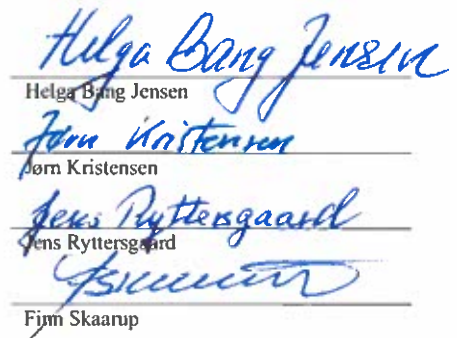 Helga Bang Jensen
Helga Bang Jensen
Jørn Kristensen
Jørn Kristensen
Jens Ryttersgaard
Jens Ryttersgaard
Finn Skaarup